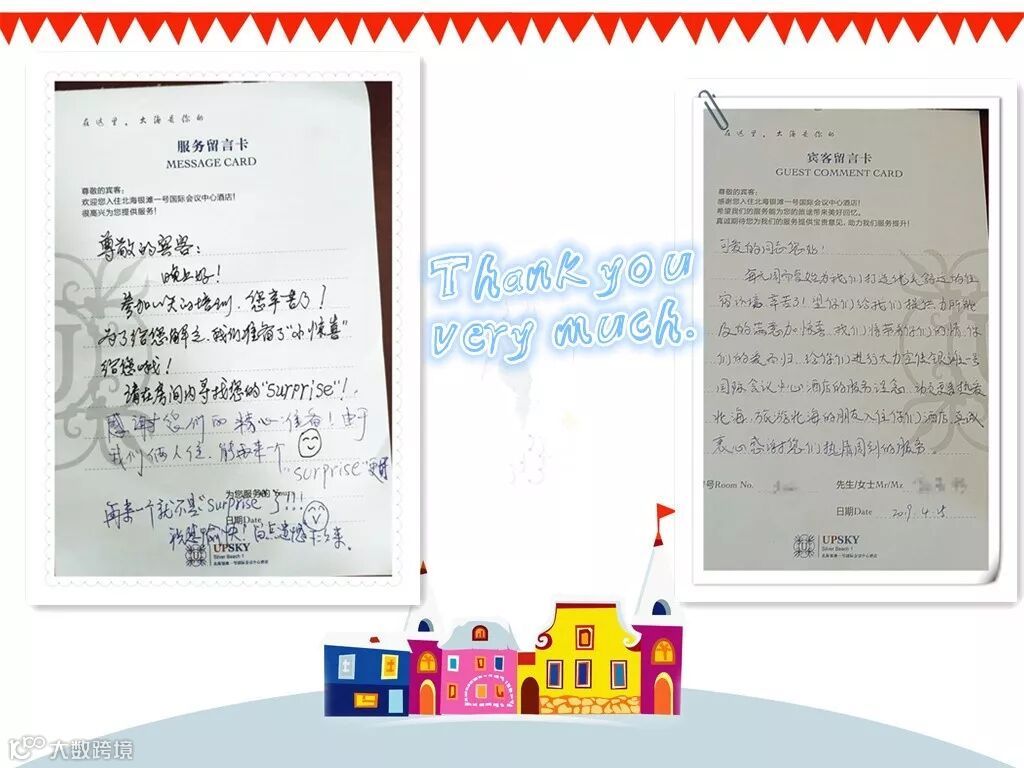 在这里，大海是你的
服务留言卡
MESSAGE CARD
尊敬的宾客：
欢迎您入住北海银滩一号国际会议中心酒店！
很高兴为您提供服务！
尊敬的宾客：
晚上好！
参加一天的培训，您辛苦了！
为了给您解乏，我们准备了"小惊喜"
给您哦！
请在房间内寻找您的"surprise"！
感谢您们的精心准备！由于
我们俩人住，能再来个
"surprise"更好
为您服务的 Your
再来一个就不是"surprise"了!!!
日期Date
UPSKY
Silver Beach 1
北海银滩一号国际会议中心酒店
Thank you
very much.
在这里，大海是你的
宾客留言卡
GUEST COMMENT CARD
尊敬的宾客：
感谢您入住北海银滩一号国际会议中心酒店！
希望我们的服务能为您的旅途带来美好回忆。
真诚期待您为我们的服务提供宝贵意见，助力我们服务提升！
可爱的同志您好！
每天因需要您为我们打造优美舒适的住
宿环境辛苦了！望你们给我们提供力所能
及的
们的爱而归，给你们进行大力宣传银滩一号
国际会议中心酒店的服务
北海，旅游北海的朋友入住你们酒店，真诚
衷心感谢您们热情周到的服务。
房号Room No.
先生/女士Mr/Mz
日期Date 2019.4.15
UPSKY
Silver Beach 1
北海银滩一号国际会议中心酒店
大数跨境